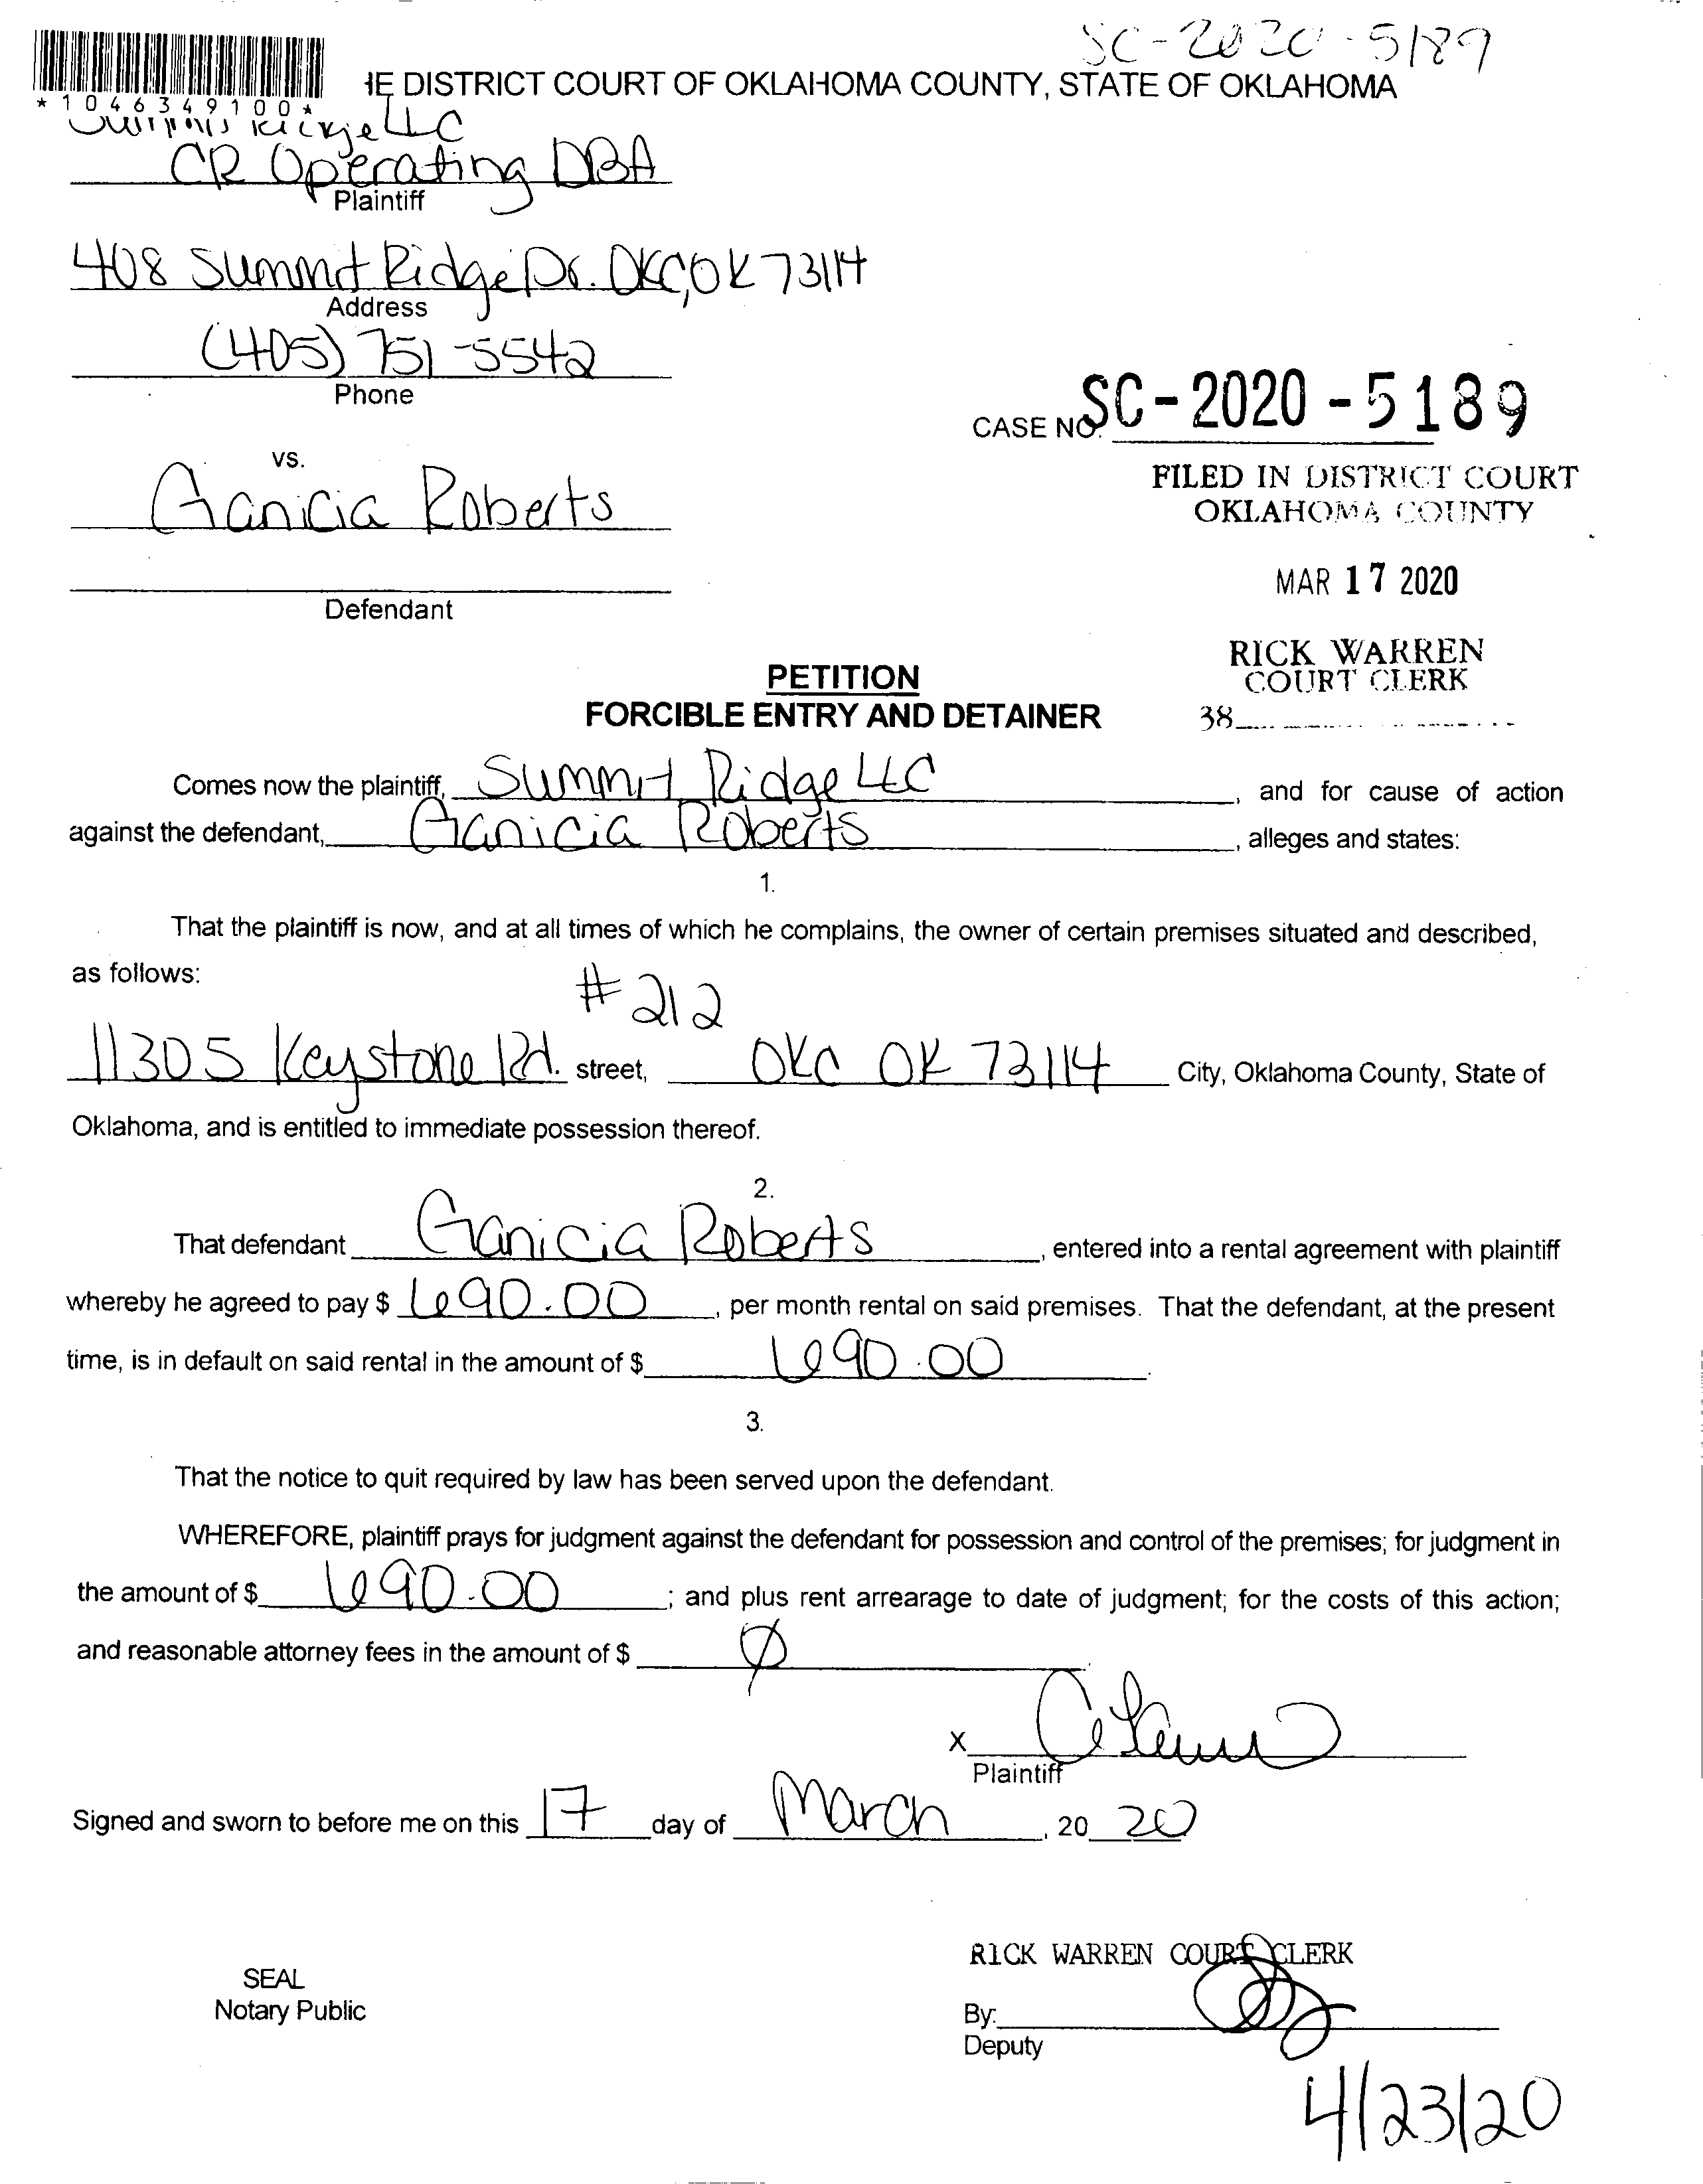 SC-2020-5189
*1046349100*
HE DISTRICT COURT OF OKLAHOMA COUNTY, STATE OF OKLAHOMA
LLC
CR Operating DBA
Plaintiff
408 Summit Ridge Dr. OKC, OK 73114
Address
(405) 751-5542
Phone
CASE NO. SC-2020-5189
vs.
FILED IN DISTRICT COURT
OKLAHOMA COUNTY
Ganicia Roberts
MAR 17 2020
Defendant
RICK WARREN
COURT CLERK
38
PETITION
FORCIBLE ENTRY AND DETAINER
Comes now the plaintiff, Summit Ridge LLC, and for cause of action
against the defendant, Ganicia Roberts, alleges and states:
1.
That the plaintiff is now, and at all times of which he complains, the owner of certain premises situated and described,
as follows:
#212
11305 Keystone Rd. street, OKC OK 73114 City, Oklahoma County, State of
Oklahoma, and is entitled to immediate possession thereof.
2.
That defendant Ganicia Roberts, entered into a rental agreement with plaintiff
whereby he agreed to pay $ 690.00, per month rental on said premises. That the defendant, at the present
time, is in default on said rental in the amount of $ 690.00.
3.
That the notice to quit required by law has been served upon the defendant.
WHEREFORE, plaintiff prays for judgment against the defendant for possession and control of the premises; for judgment in
the amount of $ 690.00; and plus rent arrearage to date of judgment; for the costs of this action;
and reasonable attorney fees in the amount of $ Ø.
X
Plaintiff
Signed and sworn to before me on this 17 day of March, 2020
RICK WARREN COURT CLERK
SEAL
Notary Public
By:
Deputy
4/23/20